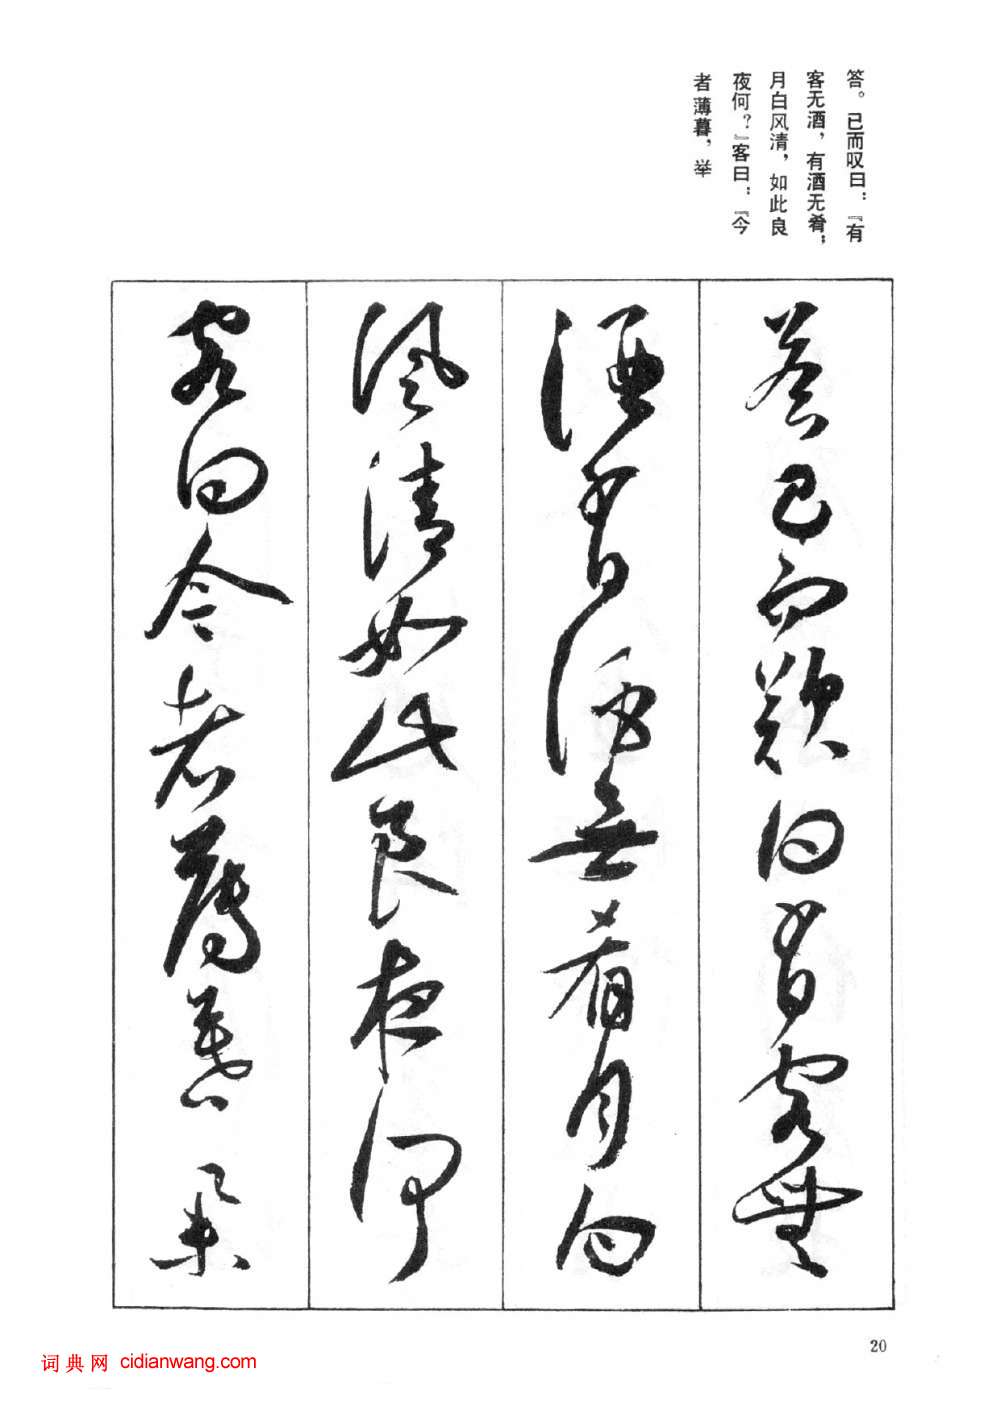 答。已而叹曰：『有
客无酒，有酒无肴；
月白风清，如此良
夜何？』客曰：『今
者薄暮，举
答已而歎曰有客無
酒有酒無肴月白
風清如此良夜何
客曰今者薄暮舉
20
词典网 cidianwang.com